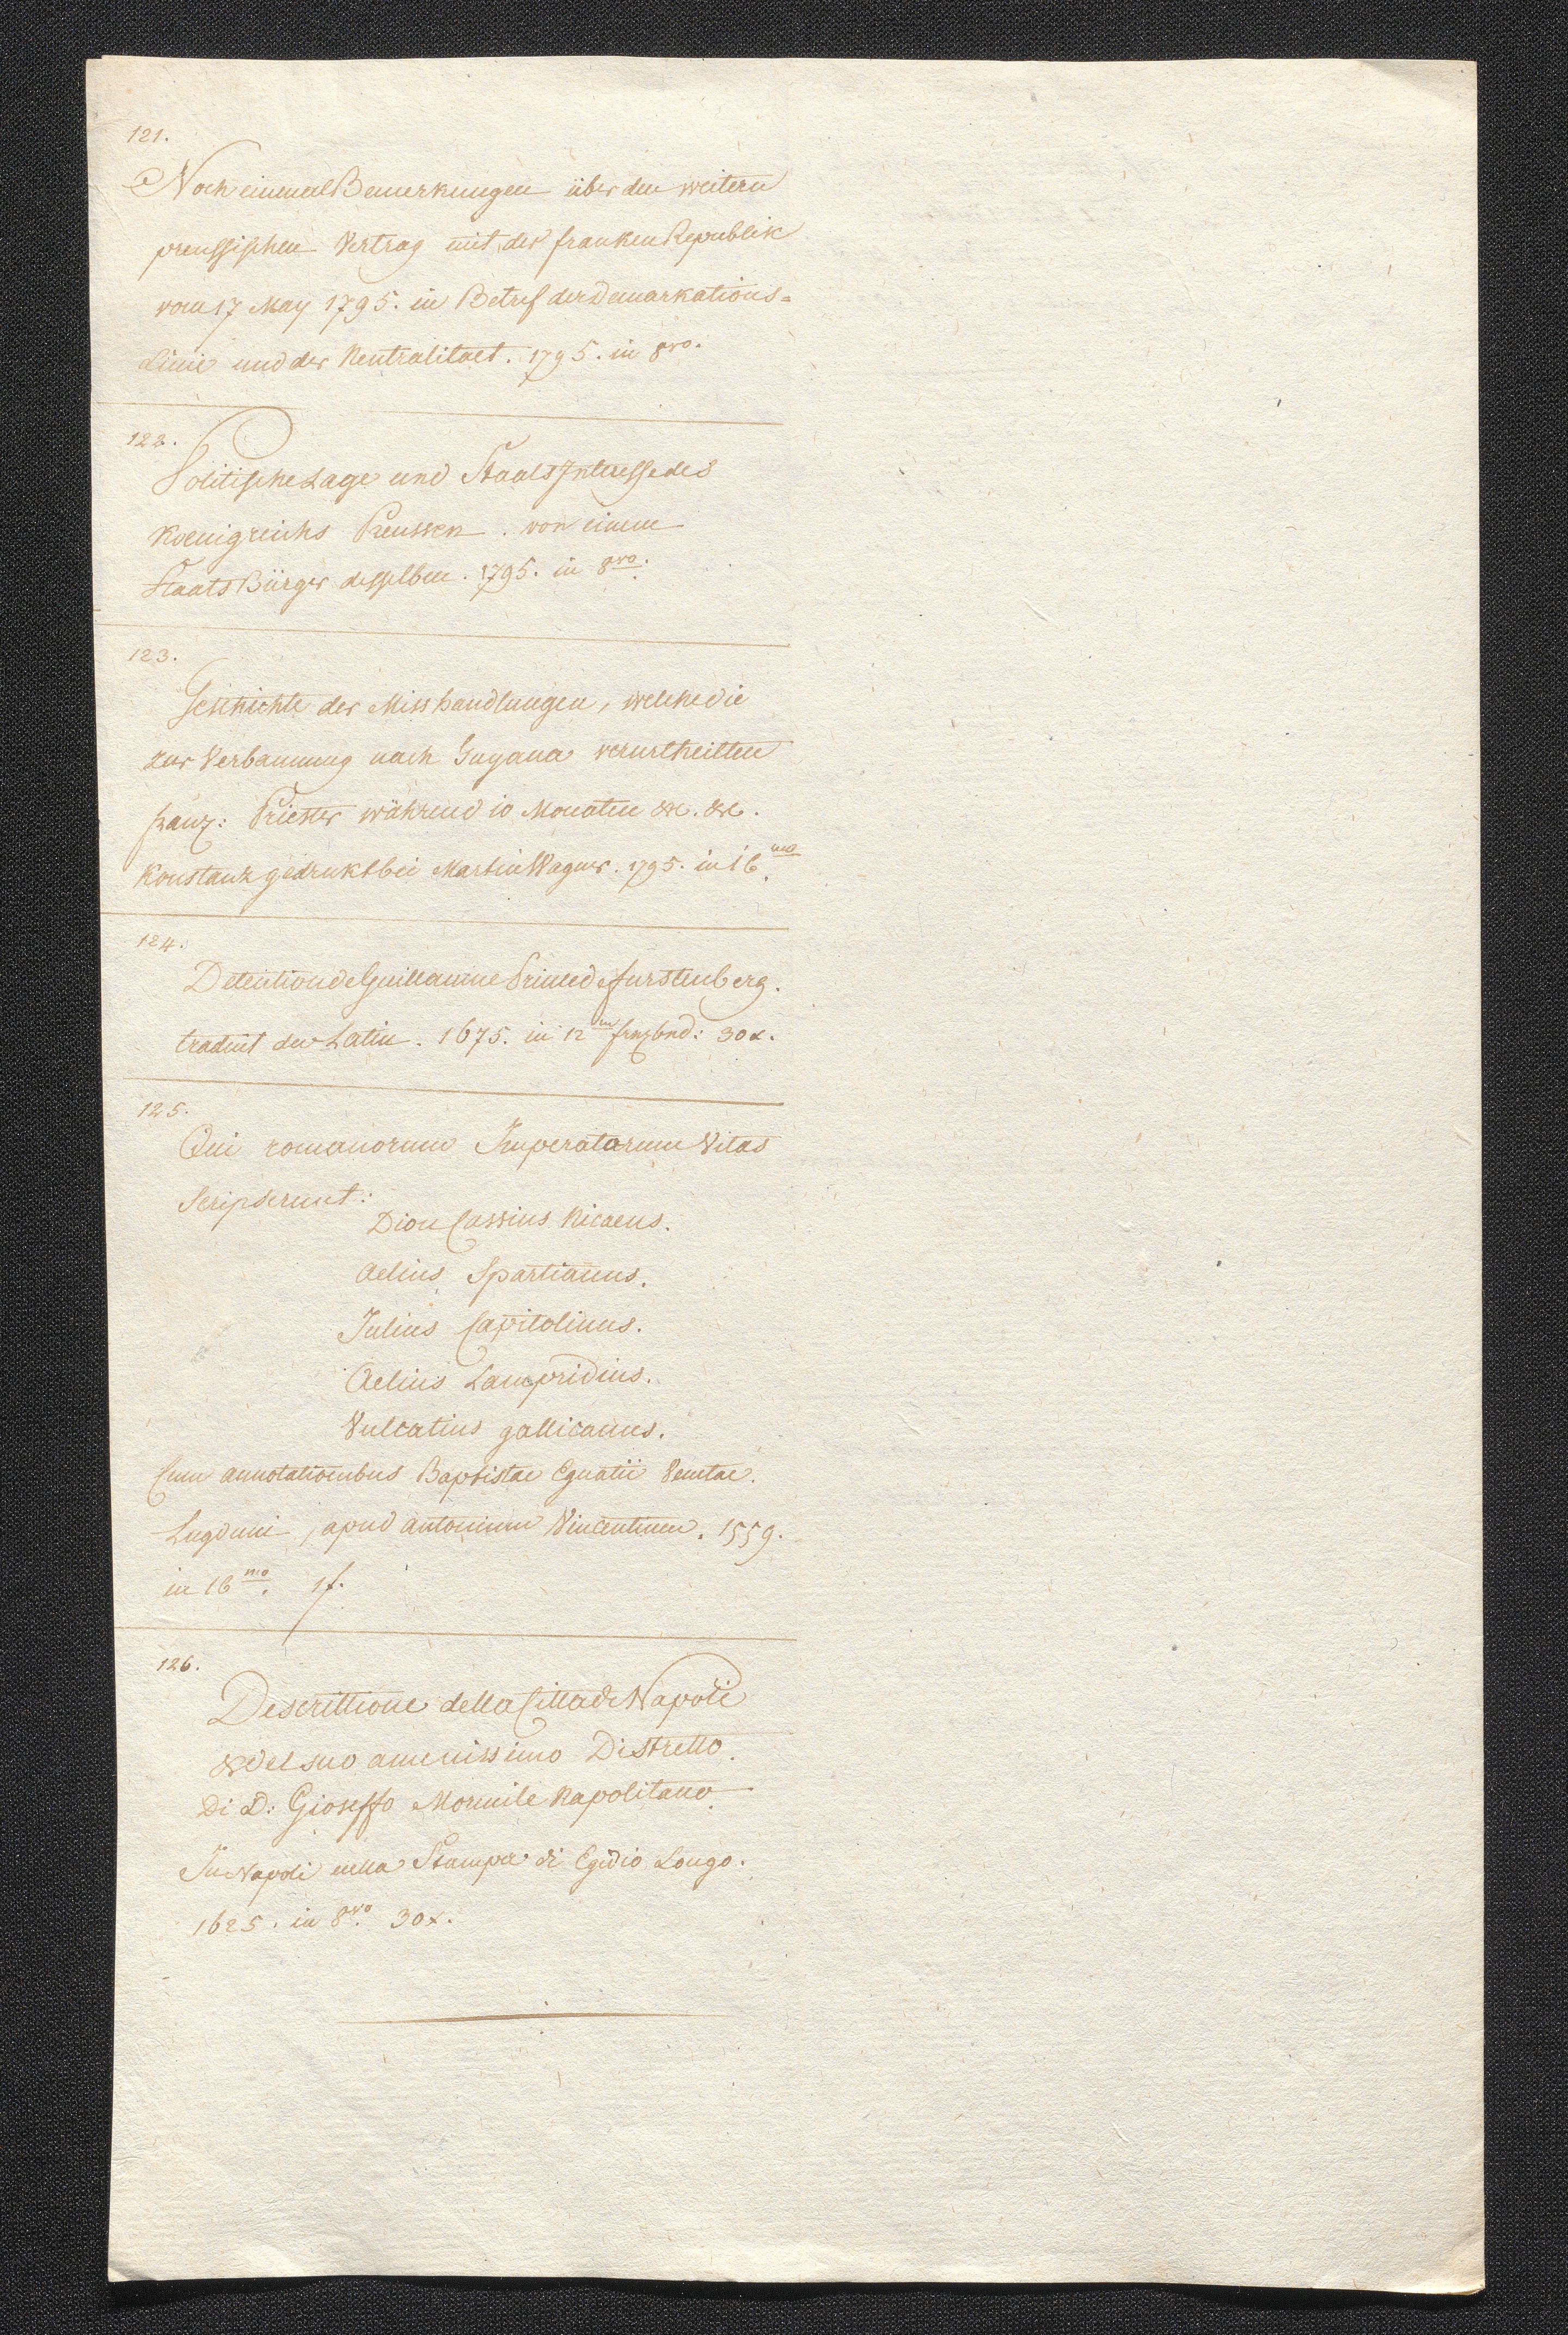 121.
Noch einmal Bemerkungen über den weitern
preussischen Vertrag mit der franken Republik
vom 17 May 1795. in Betref der Demarkations=
Linie und der Neutralitaet. 1795. in 8vo.
122.
Politische Lage und Staats Interesse des
Koenigreichs Preussen. von einem
Staats Bürger desselben. 1795. in 8vo.
123.
Geschichte der Misshandlungen, welche die
zur Verbannung nach Guyana verurtheilten
franz: Priester während 10 Monaten &c. &c.
Konstanz gedrukt bei Martin Wagner. 1795. in 16mo.
124.
Detention de Guillaume Prince de furstenberg.
traduit du Latin. 1675. in 12mo frzbnd: 30x.
125.
Qui romanorum Imperatorum Vitas
Scripserunt:
Dion Cassius Nicaeus.
Aelius Spartianus.
Julius Capitolinus.
Aelius Lampridius.
Vulcatius gallicanus.
Cum annotationibus Baptistae Egnatii Venetae.
Lugduni, apud antonium Vincentium. 1559.
in 16mo. 1f.
126.
Descrittione della Citta di Napoli
& del suo amenissimo Distretto.
Di D: Gioseffo Mormile Napolitano.
In Napoli nella Stampa di Egidio Longo.
1625. in 8vo. 30x.